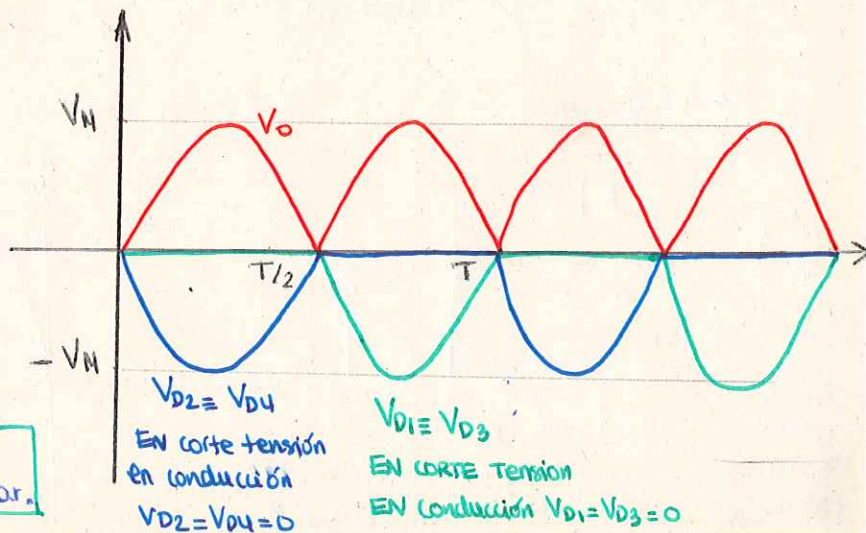 V_M
V_o
T/2
T
- V_M
V_D2 ≡ V_D4
EN corte tensión
en conducción
V_D2 = V_D4 = 0
V_D1 ≡ V_D3
EN CORTE Tension
EN conducción V_D1 = V_D3 = 0